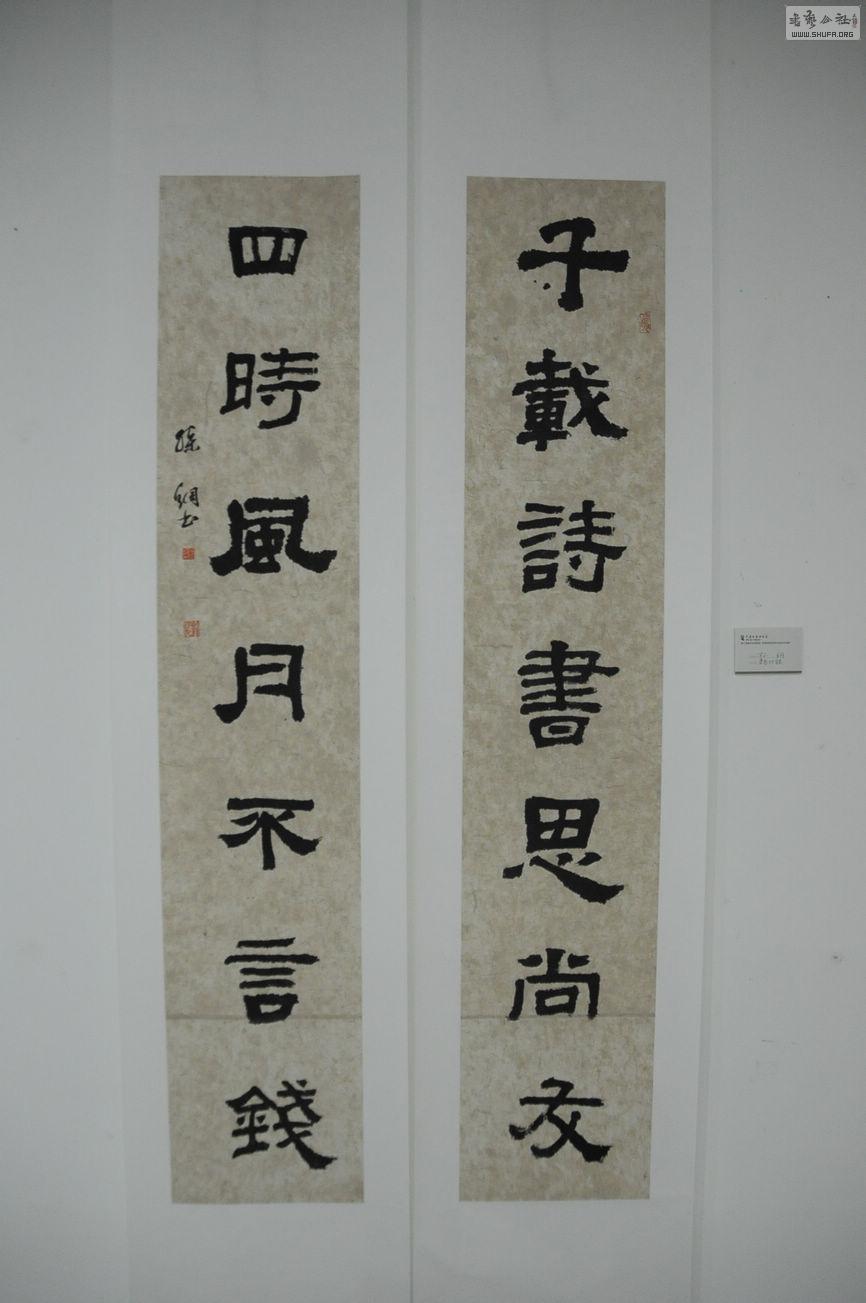 千載詩書思尚友
四時風月不言錢
孫鋼書
書藝公社
WWW.SHUFA.ORG